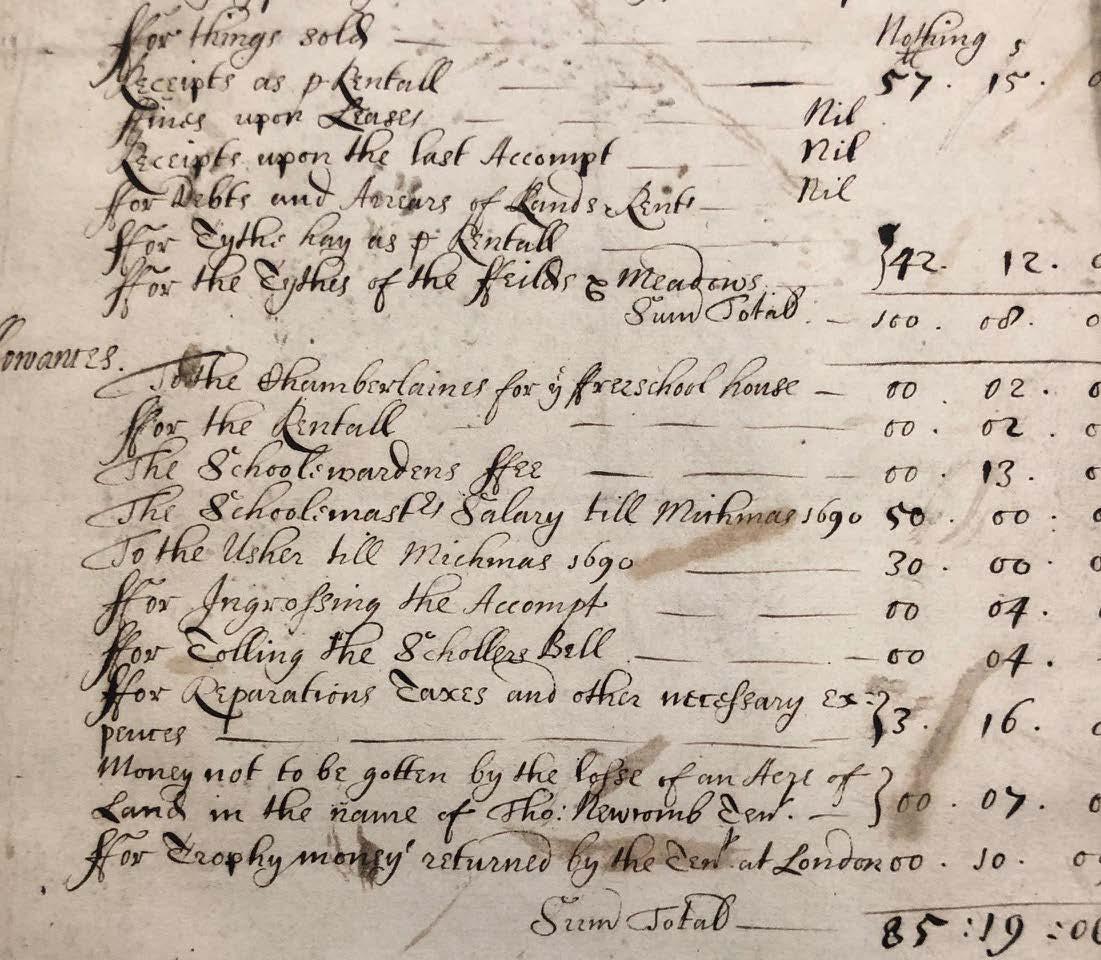 ffor things sold — Nothing
li s
Receipts as p Rentall — 57 . 15 .
ffines upon Leases — Nil
Receipts upon the last Accompt — Nil
ffor Debts and Arrears of Lands & Rents — Nil
ffor Tythe hay as p Rentall —
ffor the Tythes of the ffeilds & Meadows } 42 . 12 .
Sum Total . — 100 . 08 .
lowances .
To the Chamberlaines for ye ffreeschool house — 00 . 02 .
ffor the Rentall — 00 . 02 .
The Schoolewardens ffee — 00 . 13 .
The Schoolemastrs Salary till Michmas 1690 50 . 00 .
To the Usher till Michmas 1690 — 30 . 00 .
ffor Ingrossing the Accompt — 00 04 .
ffor Tolling the Schollers Bell — 00 04 .
ffor Reparations Taxes and other necessary ex-
pences — } 3 . 16 .
Money not to be gotten by the losse of an Acre of
Land in the name of Tho: Newcomb Ten. — } 00 . 07 .
ffor Trophy money returned by the Tent at London 00 . 10 .
Sum Total — 85 : 19 : 00